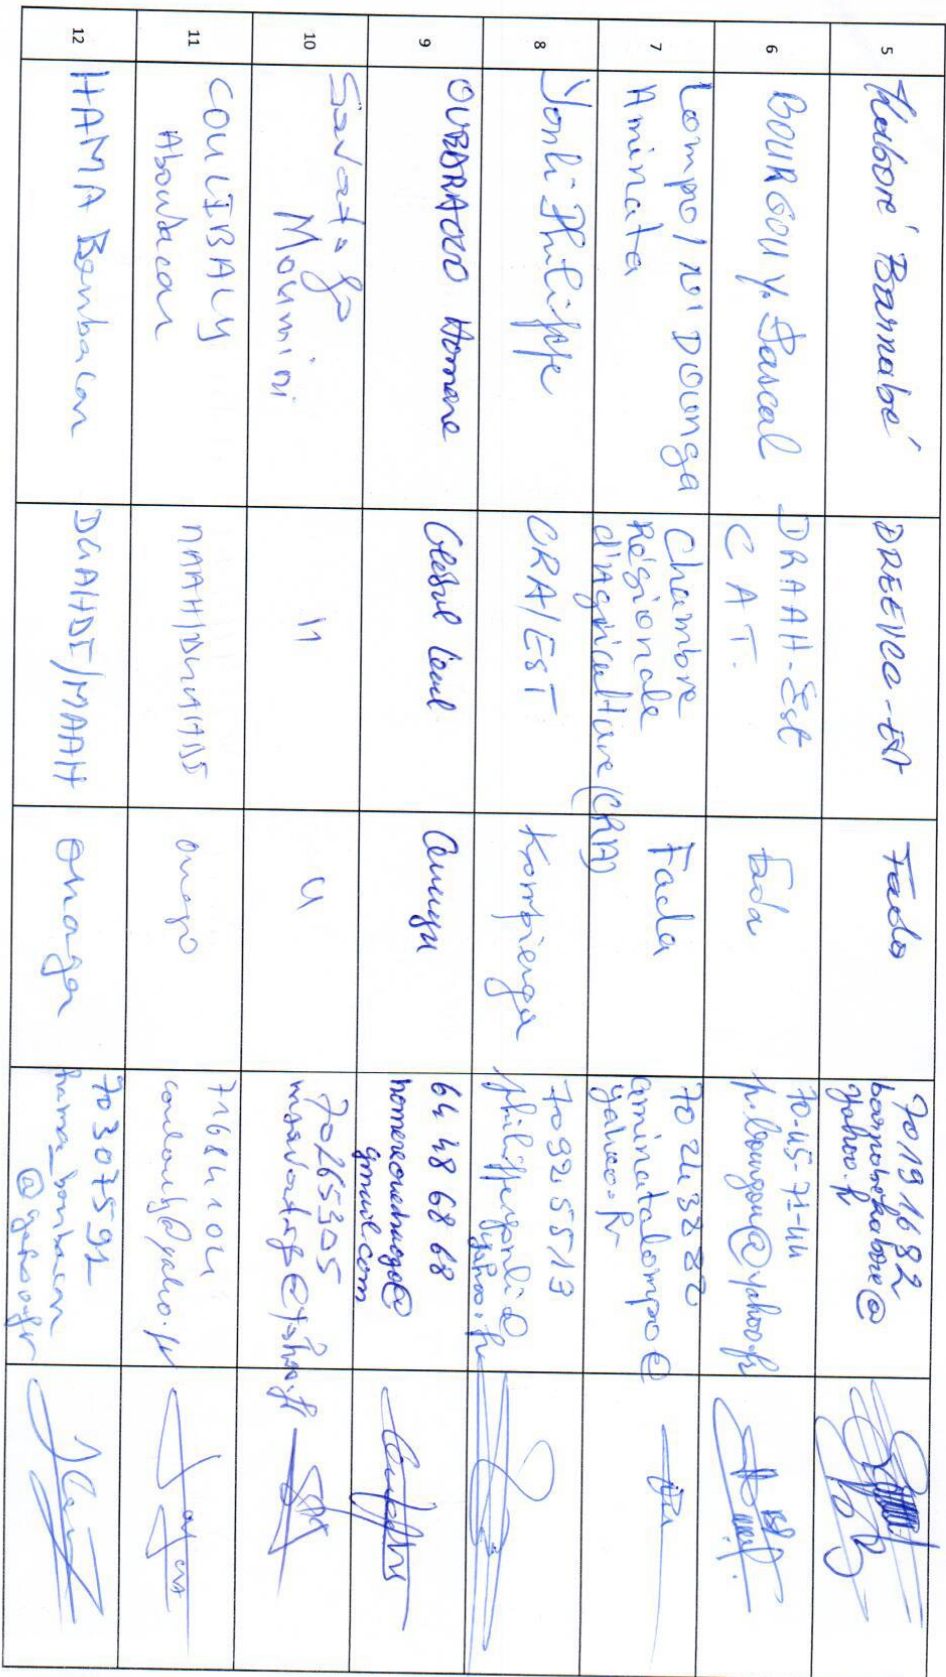 5
Kaboré Barnabé
DREEVCC-EST
Fada
70191682
barnabekabore@
yahoo.fr
6
BOURGOU Y. Pascal
DRAAH-Est
C A T.
Fada
70-45-71-44
p.bourgou@yahoo.fr
7
Lompo / NIDOUNGA
Aminata
Chambre
Régionale
d'Agriculture (CRA)
Fada
70 24 38 28
aminatalompo@
yahoo.fr
8
Yonli Philippe
CRA/EST
Kompienga
70925513
philippeyonli@
yahoo.fr
9
OUEDRAOGO Homere
64 48 68 68
homereouedraogo@
gmail.com
10
Savadogo
Moumini
"
"
70265305
11
COULIBALY
Aboubacar
MAAH/DGAHDI
Ouaga
71684104
12
HAMA Boubacar
DGAHDI/MAAH
Ouaga
70307591
hama_boubacar
@yahoo.fr